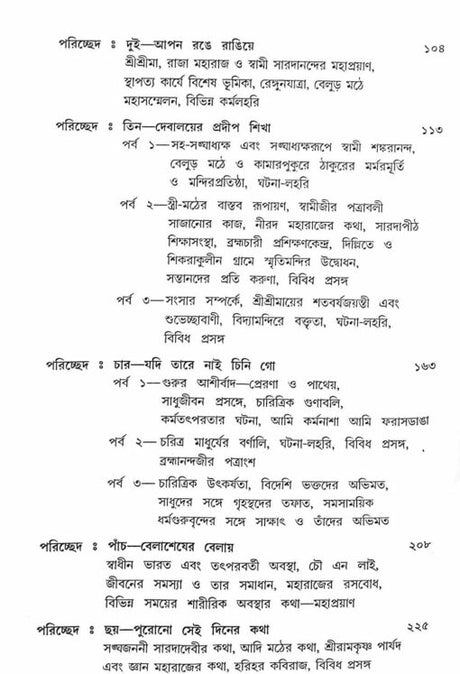 পরিচ্ছেদ ঃ দুই—আপন রঙে রাঙিয়ে ১০৪
শ্রীশ্রীমা, রাজা মহারাজ ও স্বামী সারদানন্দের মহাপ্রয়াণ,
স্থাপত্য কার্যে বিশেষ ভূমিকা, রেঙ্গুনযাত্রা, বেলুড় মঠে
মহাসম্মেলন, বিভিন্ন কর্মলহরি
পরিচ্ছেদ ঃ তিন—দেবালয়ের প্রদীপ শিখা ১১৩
পর্ব ১—সহ-সঙ্ঘাধ্যক্ষ এবং সঙ্ঘাধ্যক্ষরূপে স্বামী শঙ্করানন্দ,
বেলুড় মঠে ও কামারপুকুরে ঠাকুরের মর্মরমূর্তি
ও মন্দিরপ্রতিষ্ঠা, ঘটনা-লহরি
পর্ব ২—স্ত্রী-মঠের বাস্তব রূপায়ণ, স্বামীজীর পত্রাবলী
সাজানোর কাজ, নীরদ মহারাজের কথা, সারদাপীঠ
শিক্ষাসংস্থা, ব্রহ্মচারী প্রশিক্ষণকেন্দ্র, দিল্লিতে ও
শিকরাকুলীন গ্রামে স্মৃতিমন্দির উদ্বোধন,
সন্তানদের প্রতি করুণা, বিবিধ প্রসঙ্গ
পর্ব ৩—সংসার সম্পর্কে, শ্রীশ্রীমায়ের শতবর্ষজয়ন্তী এবং
শুভেচ্ছাবাণী, বিদ্যামন্দিরে বক্তৃতা, ঘটনা-লহরি,
বিবিধ প্রসঙ্গ
পরিচ্ছেদ ঃ চার—যদি তারে নাই চিনি গো ১৬৩
পর্ব ১—গুরুর আশীর্বাদ—প্রেরণা ও পাথেয়,
সাধুজীবন প্রসঙ্গে, চারিত্রিক গুণাবলি,
কর্মতৎপরতার ঘটনা, আমি কর্মনাশা আমি ফরাসডাঙা
পর্ব ২—চরিত্র মাধুর্যের বর্ণালি, ঘটনা-লহরি, বিবিধ প্রসঙ্গ,
ব্রহ্মানন্দজীর পত্রাংশ
পর্ব ৩—চারিত্রিক উৎকর্ষতা, বিদেশি ভক্তদের অভিমত,
সাধুদের সঙ্গে গৃহস্থদের তফাত, সমসাময়িক
ধর্মগুরুবৃন্দের সঙ্গে সাক্ষাৎ ও তাঁদের অভিমত
পরিচ্ছেদ ঃ পাঁচ—বেলাশেষের বেলায় ২০৮
স্বাধীন ভারত এবং তৎপরবর্তী অবস্থা, চৌ এন লাই,
জীবনের সমস্যা ও তার সমাধান, মহারাজের রসবোধ,
বিভিন্ন সময়ের শারীরিক অবস্থার কথা—মহাপ্রয়াণ
পরিচ্ছেদ ঃ ছয়—পুরোনো সেই দিনের কথা ২২৫
সঙ্ঘজননী সারদাদেবীর কথা, আদি মঠের কথা, শ্রীরামকৃষ্ণ পার্ষদ
এবং জ্ঞান মহারাজের কথা, হরিহর কবিরাজ, বিবিধ প্রসঙ্গ